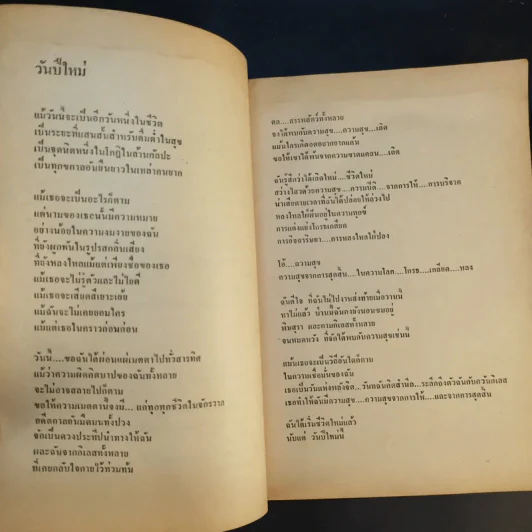 วันปีใหม่
แม้วันนี้จะเป็นอีกวันหนึ่งในชีวิต
เป็นระยะที่แสนสั้นสำหรับดื่มด่ำในสุข
เป็นจุดนิดหนึ่งในโกฏิในล้านกัลปะ
เป็นทุกขกาลอันยืนยาวในเหล่าคนยาก
แม้เธอจะเป็นอะไรก็ตาม
แต่นามของเธอนั้นมีความหมาย
อย่างน้อยในความงมงายของฉัน
ที่ยังผูกพันในรูปรสกลิ่นเสียง
ที่ยังหลงใหลแม้แต่เพียงชื่อของเธอ
แม้เธอจะไม่รู้ตัวและไม่ไยดี
แม้เธอจะเสียดสีเยาะเย้ย
แม้ฉันจะไม่เคยยอมใคร
แม้แต่เธอในคราวก่อนก่อน
วันนี้....ขอฉันได้ผ่อนแผ่เมตตาไปทั่วสารทิศ
แม้ว่าความผิดติดบาปของฉันทั้งหลาย
จะไม่อาจสลายไปก็ตาม
ขอให้ความเมตตานี้จงมี.... แก่ทุกทุกชีวิตในจักรวาล
อดีตกาลอันมืดมนทั้งปวง
จักเป็นดวงประทีปนำทางให้ฉัน
และฉันจากกิเลสทั้งหลาย
ที่เคยกลับใจกายไว้ท่วมท้น
ดล....สรรพสัตว์ทั้งหลาย
จงได้พบกับความสุข....ความสุข...เถิด
แม้นใครเกิดอดอยากยากแค้น
ขอให้เขาได้พ้นจากความขาดแคลน....เถิด
ฉันรู้สึกว่าได้เกิดใหม่....ชีวิตใหม่
สว่างไสวด้วยความสุข....ความปีติ....จากการให้....การบริจาค
น่าเสียดายเวลาที่ฉันได้ปล่อยให้ล่วงไป
หลงใหลใฝ่ฝันอยู่ในความทุกข์
การแก่งแย่งโกรธเกลียด
การอิจฉาริษยา....การหลงใหลใฝ่ปอง
โอ้....ความสุข
ความสุขจากการสุดสิ้น....ในความโลภ....โกรธ....เกลียด....หลง
ฉันดีใจ ที่ฉันไม่ไปงานส่งท้ายเมื่อวานนี้
หาไม่แล้ว ป่านนี้ฉันคงยังนอนซมอยู่
พิษสุรา และถามกิเลสทั้งหลาย
จนหมดหวัง ที่จักได้พบกับความสุขเช่นนี้
แม้นเธอจะเป็นวิถีอันใดก็ตาม
ในความเชื่อมั่นของฉัน
เธอเป็นวันแห่งพลังจิต....วันที่ฉันคิดสำนึก....ระลึกถึงตัวฉันกับกิเลส
เธอทำให้ฉันมีความสุข....ความสุขจากการให้....และจากการสุดสิ้น
ฉันได้เริ่มชีวิตใหม่แล้ว
นับแต่ วันปีใหม่นี้